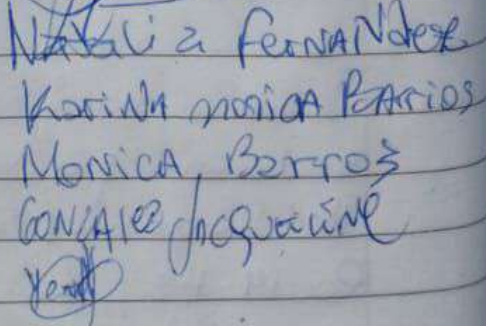 Natali a FerNANdez
KariNA moniCA BArrios
MoNiCA, Barros
GONZALEZ JacQueliNe